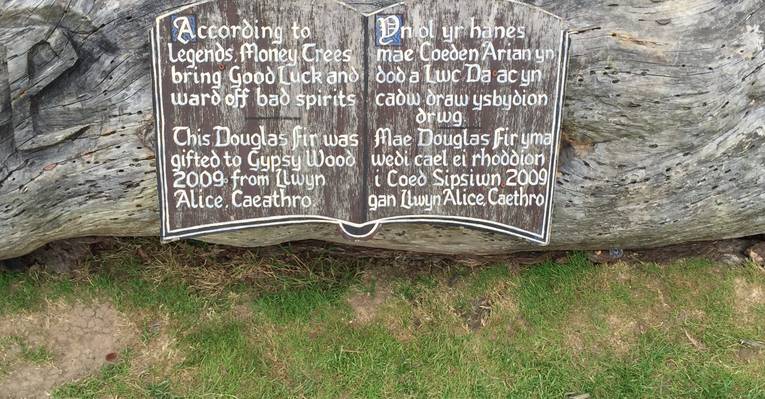 According to
legends, Money Trees
bring Good Luck and
ward off bad spirits
This Douglas Fir was
gifted to Gypsy Wood
2009, from Llwyn
Alice, Caeathro.
Yn ol yr hanes
mae Coeden Arian yn
dod a Lwc Da ac yn
cadw draw ysbydion
drwg.
Mae Douglas Fir yma
wedi cael ei rhoddion
i Coed Sipsiwn 2009
gan Llwyn Alice, Caethro